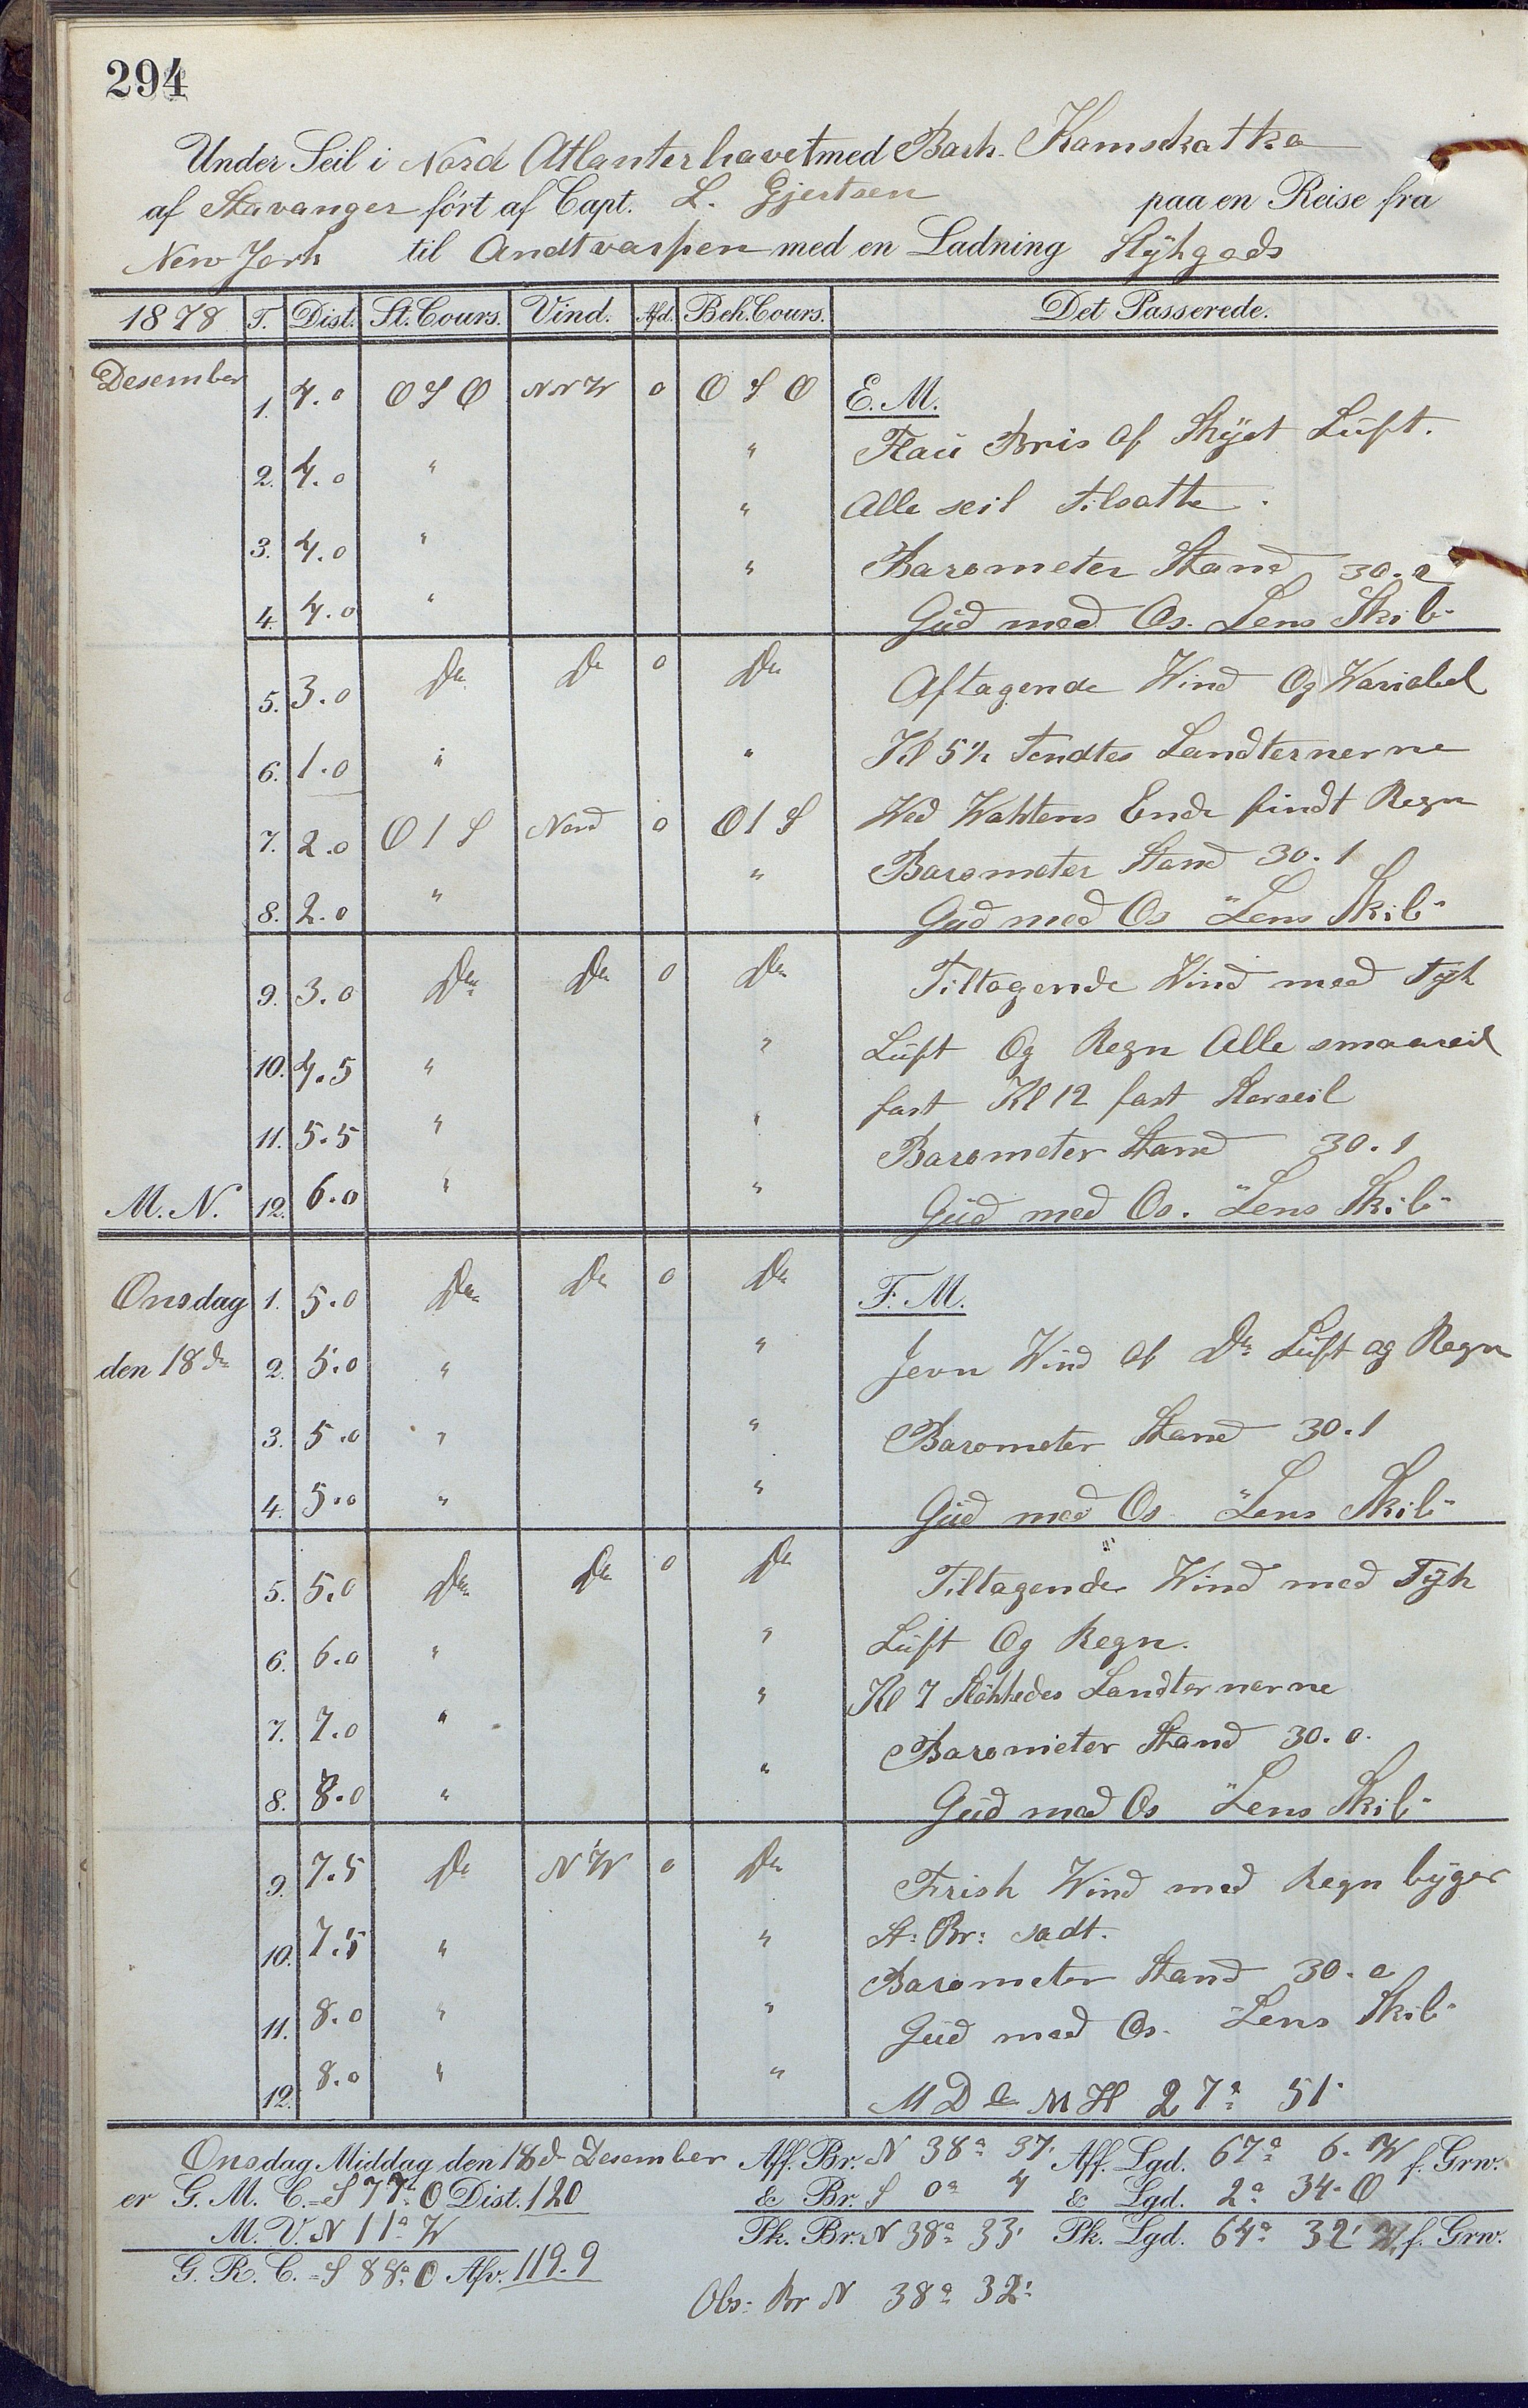 294
Under Seil i Nord Atlanterhavet med Bark. Kamskatka
af Stavanger ført af Capt. L. Gjertsen paa en Reise fra
New York til Andtvarpen med en Ladning Stÿkgods
1878 T. Dist. St. Cours. Vind. Afd. Beh. Cours. Det Passerede.
Desember 1. 4.0 O S O NNW 0 O S O E. M.
Flaü Bris af Skÿet Lüft.
2. 4.0 " "
Alle seil tilsatte.
3. 4.0 " "
Barometer Stand 30.2
4. 4.0 " "
Güd med Os. Lens Skib"
5. 3.0 Do Do 0 Do Aftagende Wind Og Wariabel
6. 1.0 " " Kl 5½ Tendtes Landternerne
7. 2.0 O 1 S Nord 0 O 1 S Wed Waktens Ende findt Regn
Barometer Stand 30.1
8. 2.0 " " Güd med Os "Lens Skib"
9. 3.0 Do Do 0 Do Tiltagende Wind med Tÿk
10. 4.5 " " Lüft Og Regn Alle smaaseil
11. 5.5 " " fast Kl 12 fast Storseil
Barometer Stand 30.1
M. N. 12. 6.0 " " Güd med Os. "Lens Skib"
Onsdag 1. 5.0 Do Do 0 Do F. M.
den 18de 2. 5.0 " " Jevn Wind af Do Lüft og Regn
3. 5.0 " " Barometer Stand 30.1
4. 5.0 " " Güd med Os "Lens Skib"
5. 5.0 Do Do 0 Do Tiltagende Wind med Tÿk
6. 6.0 " " Lüft Og Regn.
7. 7.0 " " Kl 7 Slökkedes Landternerne
Barometer Stand 30.0.
8. 8.0 " " Güd med Os "Lens Skib"
9. 7.5 Do NW 0 Do Frisk Wind med Regn bÿger
10. 7.5 " " St: Br: sadt.
Barometer Stand 30.0
11. 8.0 " " Güd med Os. Lens Skib"
12. 8.0 " " M D M H 27° 51'
Onsdag Middag den 18de Desember Aff. Br. N 38° 37' Aff. Lgd. 67° 6' W f. Grw.
er G. M. C. = S 77° O Dist. 120 & Br. S 0° 4 & Lgd. 2° 34' O
M. V. N 11° W Pk. Br. N 38° 33' Pk. Lgd. 64° 32' W. f. Grw.
G. R. C. = S 88° O Afv. 119.9
Obs: Br N 38° 32'